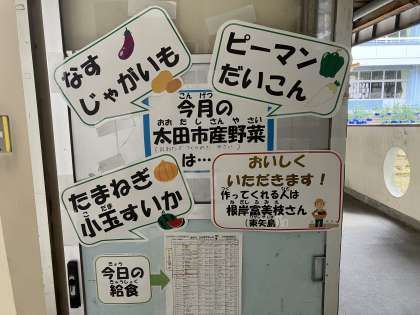 なす
じゃがいも
ピーマン
だいこん
こんげつ
今月の
おおたしさんやさい
太田市産野菜
は…
たまねぎ
こだま
小玉すいか
おいしく
いただきます！
作ってくれる人は
根岸富美枝さん
(東矢島)
きょう
今日の
きゅうしょく
給食